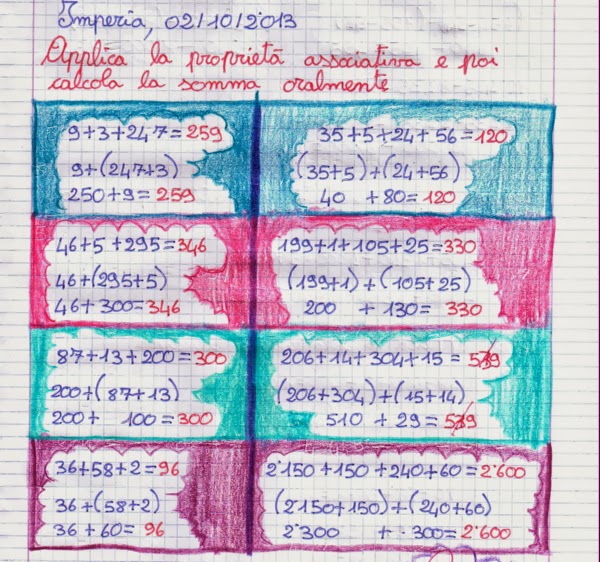 Imperia, 02/10/2013
Applica la proprietà associativa e poi
calcola la somma oralmente
9+3+247=259
9+(247+3)
250+9=259
35+5+24+56=120
(35+5)+(24+56)
40 +80=120
46+5+295=346
46+(295+5)
46+300=346
199+1+105+25=330
(199+1)+(105+25)
200 + 130= 330
87+13+200=300
200+(87+13)
200+ 100=300
206+14+304+15= 539
(206+304)+(15+14)
510 + 29= 539
36+58+2=96
36+(58+2)
36+60= 96
2·150+150+240+60=2·600
(2·150+150)+(240+60)
2·300 + · 300=2·600